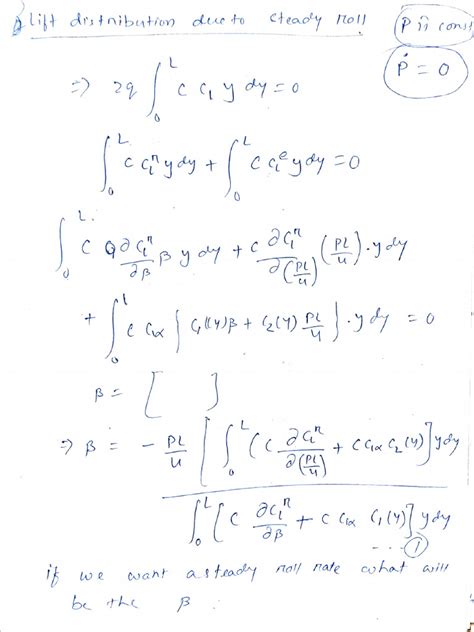 lift distribution due to steady roll
P is const
Ṗ = 0
⇒ 2q ∫₀ᴸ c c₁ y dy = 0
∫₀ᴸ c c₁ʳ y dy + ∫₀ᴸ c c₁ᵉ y dy = 0
∫₀ᴸ c ∂c₁ʳ/∂β β y dy + c ∂c₁ʳ/∂(PL/u) (PL/u) · y dy
+ ∫₀ᴸ c c₁α { c₁(y)β + c₂(y) PL/u } · y dy = 0
β = [ ]
⇒ β = - PL/u [ ∫₀ᴸ (c ∂c₁ʳ/∂(PL/u) + c c₁α c₂(y)] y dy
∫₀ᴸ [c ∂c₁ʳ/∂β + c c₁α c₁(y)] y dy
--- ①
if we want a steady roll rate what will
be the β